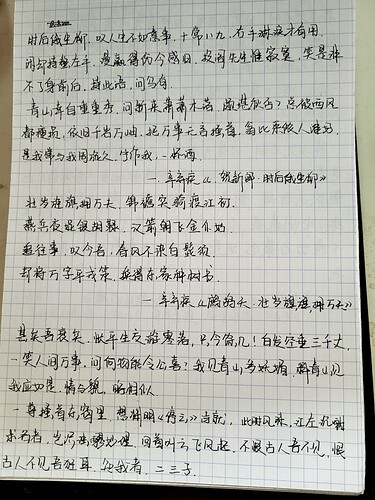 肘后俄生柳。叹人生不如意事,十常八九。右手淋浪才有用,
闲却持螯左手。谩赢得伤今感旧。投阁先生惟寂寞,笑是非
不了身前后。持此语,问乌有。
青山幸自重重秀。问新来萧萧木落,颇堪秋否?总被西风
都瘦损,依旧千岩万岫。把万事无言搔首。翁比渠侬人谁好,
是我常与我周旋久。宁作我,一杯酒。
—辛弃疾《贺新郎·肘后俄生柳》
壮岁旌旗拥万夫,锦襜突骑渡江初。
燕兵夜娖银胡觮,汉箭朝飞金仆姑。
追往事,叹今吾,春风不染白髭须。
却将万字平戎策,换得东家种树书。
—辛弃疾《鹧鸪天·壮岁旌旗拥万夫》
甚矣吾衰矣。怅平生交游零落,只今余几!白发空垂三千丈,
一笑人间万事。问何物能令公喜?我见青山多妩媚,料青山见
我应如是。情与貌,略相似。
一尊搔首东窗里。想渊明《停云》诗就,此时风味。江左沉酣
求名者,岂识浊醪妙理。回首叫云飞风起。不恨古人吾不见,恨
古人不见吾狂耳。知我者,二三子。